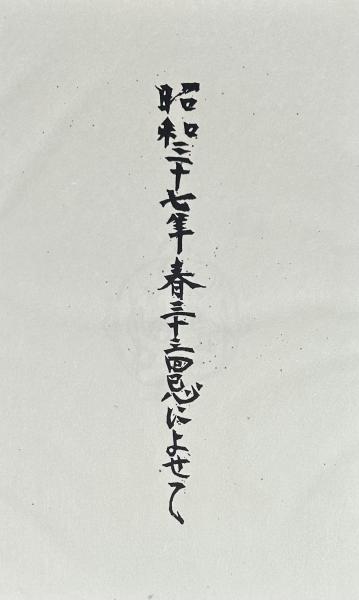 昭和三十七年春三十三回忌によせて